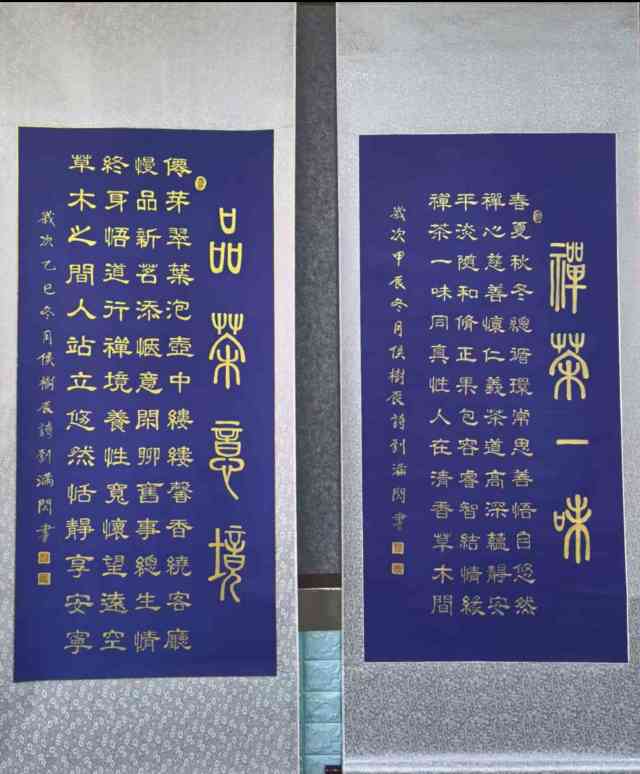 禪茶一味
春夏秋冬總循環常思善悟自悠然
禪心慈善懷仁義茶道高深蘊靜安
平淡随和脩正果包容睿智結情緣
禪茶一味同真性人在清香草木間
歲次甲辰冬月侯樹辰詩劉滿閃書
品茶意境
僊芽翠葉泡壺中縷縷馨香繞客廳
慢品新茗添愜意閑聊舊事總生情
終身悟道行禪境養性寬懷望遠空
草木之間人站立悠然恬靜享安寧
歲次乙巳冬月侯樹辰詩劉滿閃書